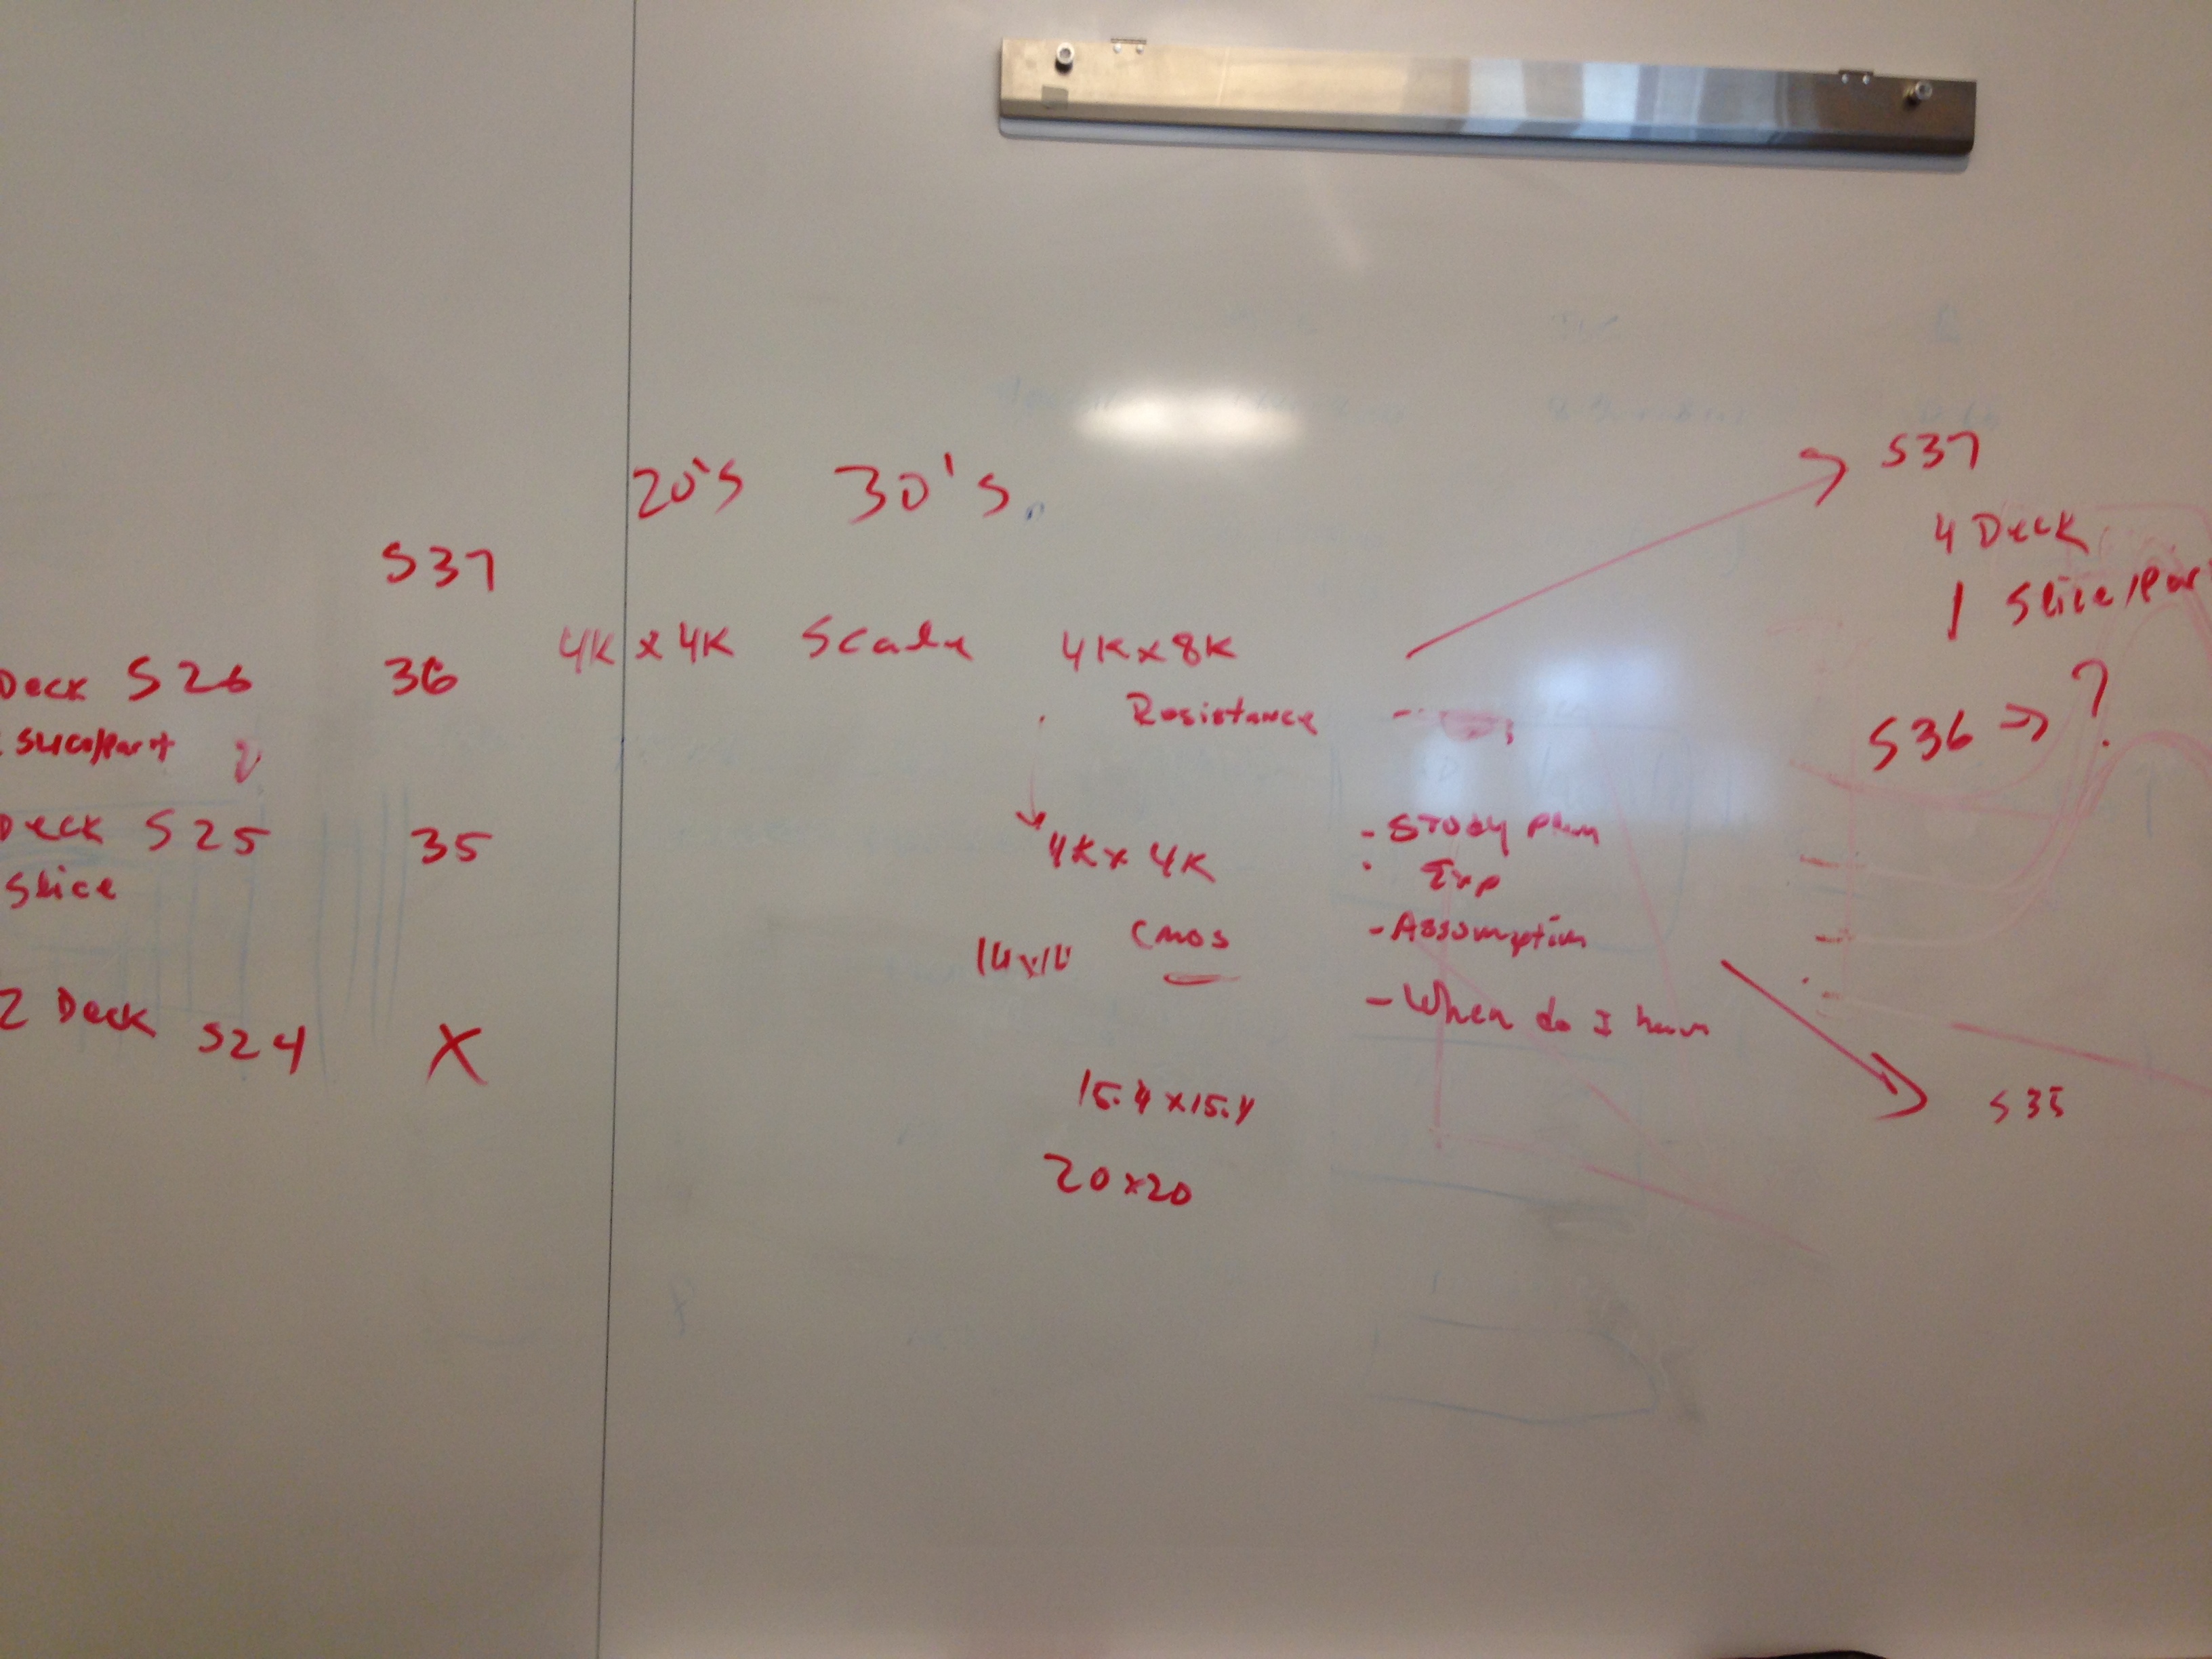 20's 30's
S37
Deck S26 36
Slice/Part
Deck S25 35
Slice
2 Deck S24 X
4K x 4K Scale 4K x 8K
Resistance
4K x 4K
CMOS
15.4 x 15.4
20 x 20
- Study Plan
Exp
- Assumption
- When do I have
S37
4 Deck
1 Slice/Par
S36 => ?
S35